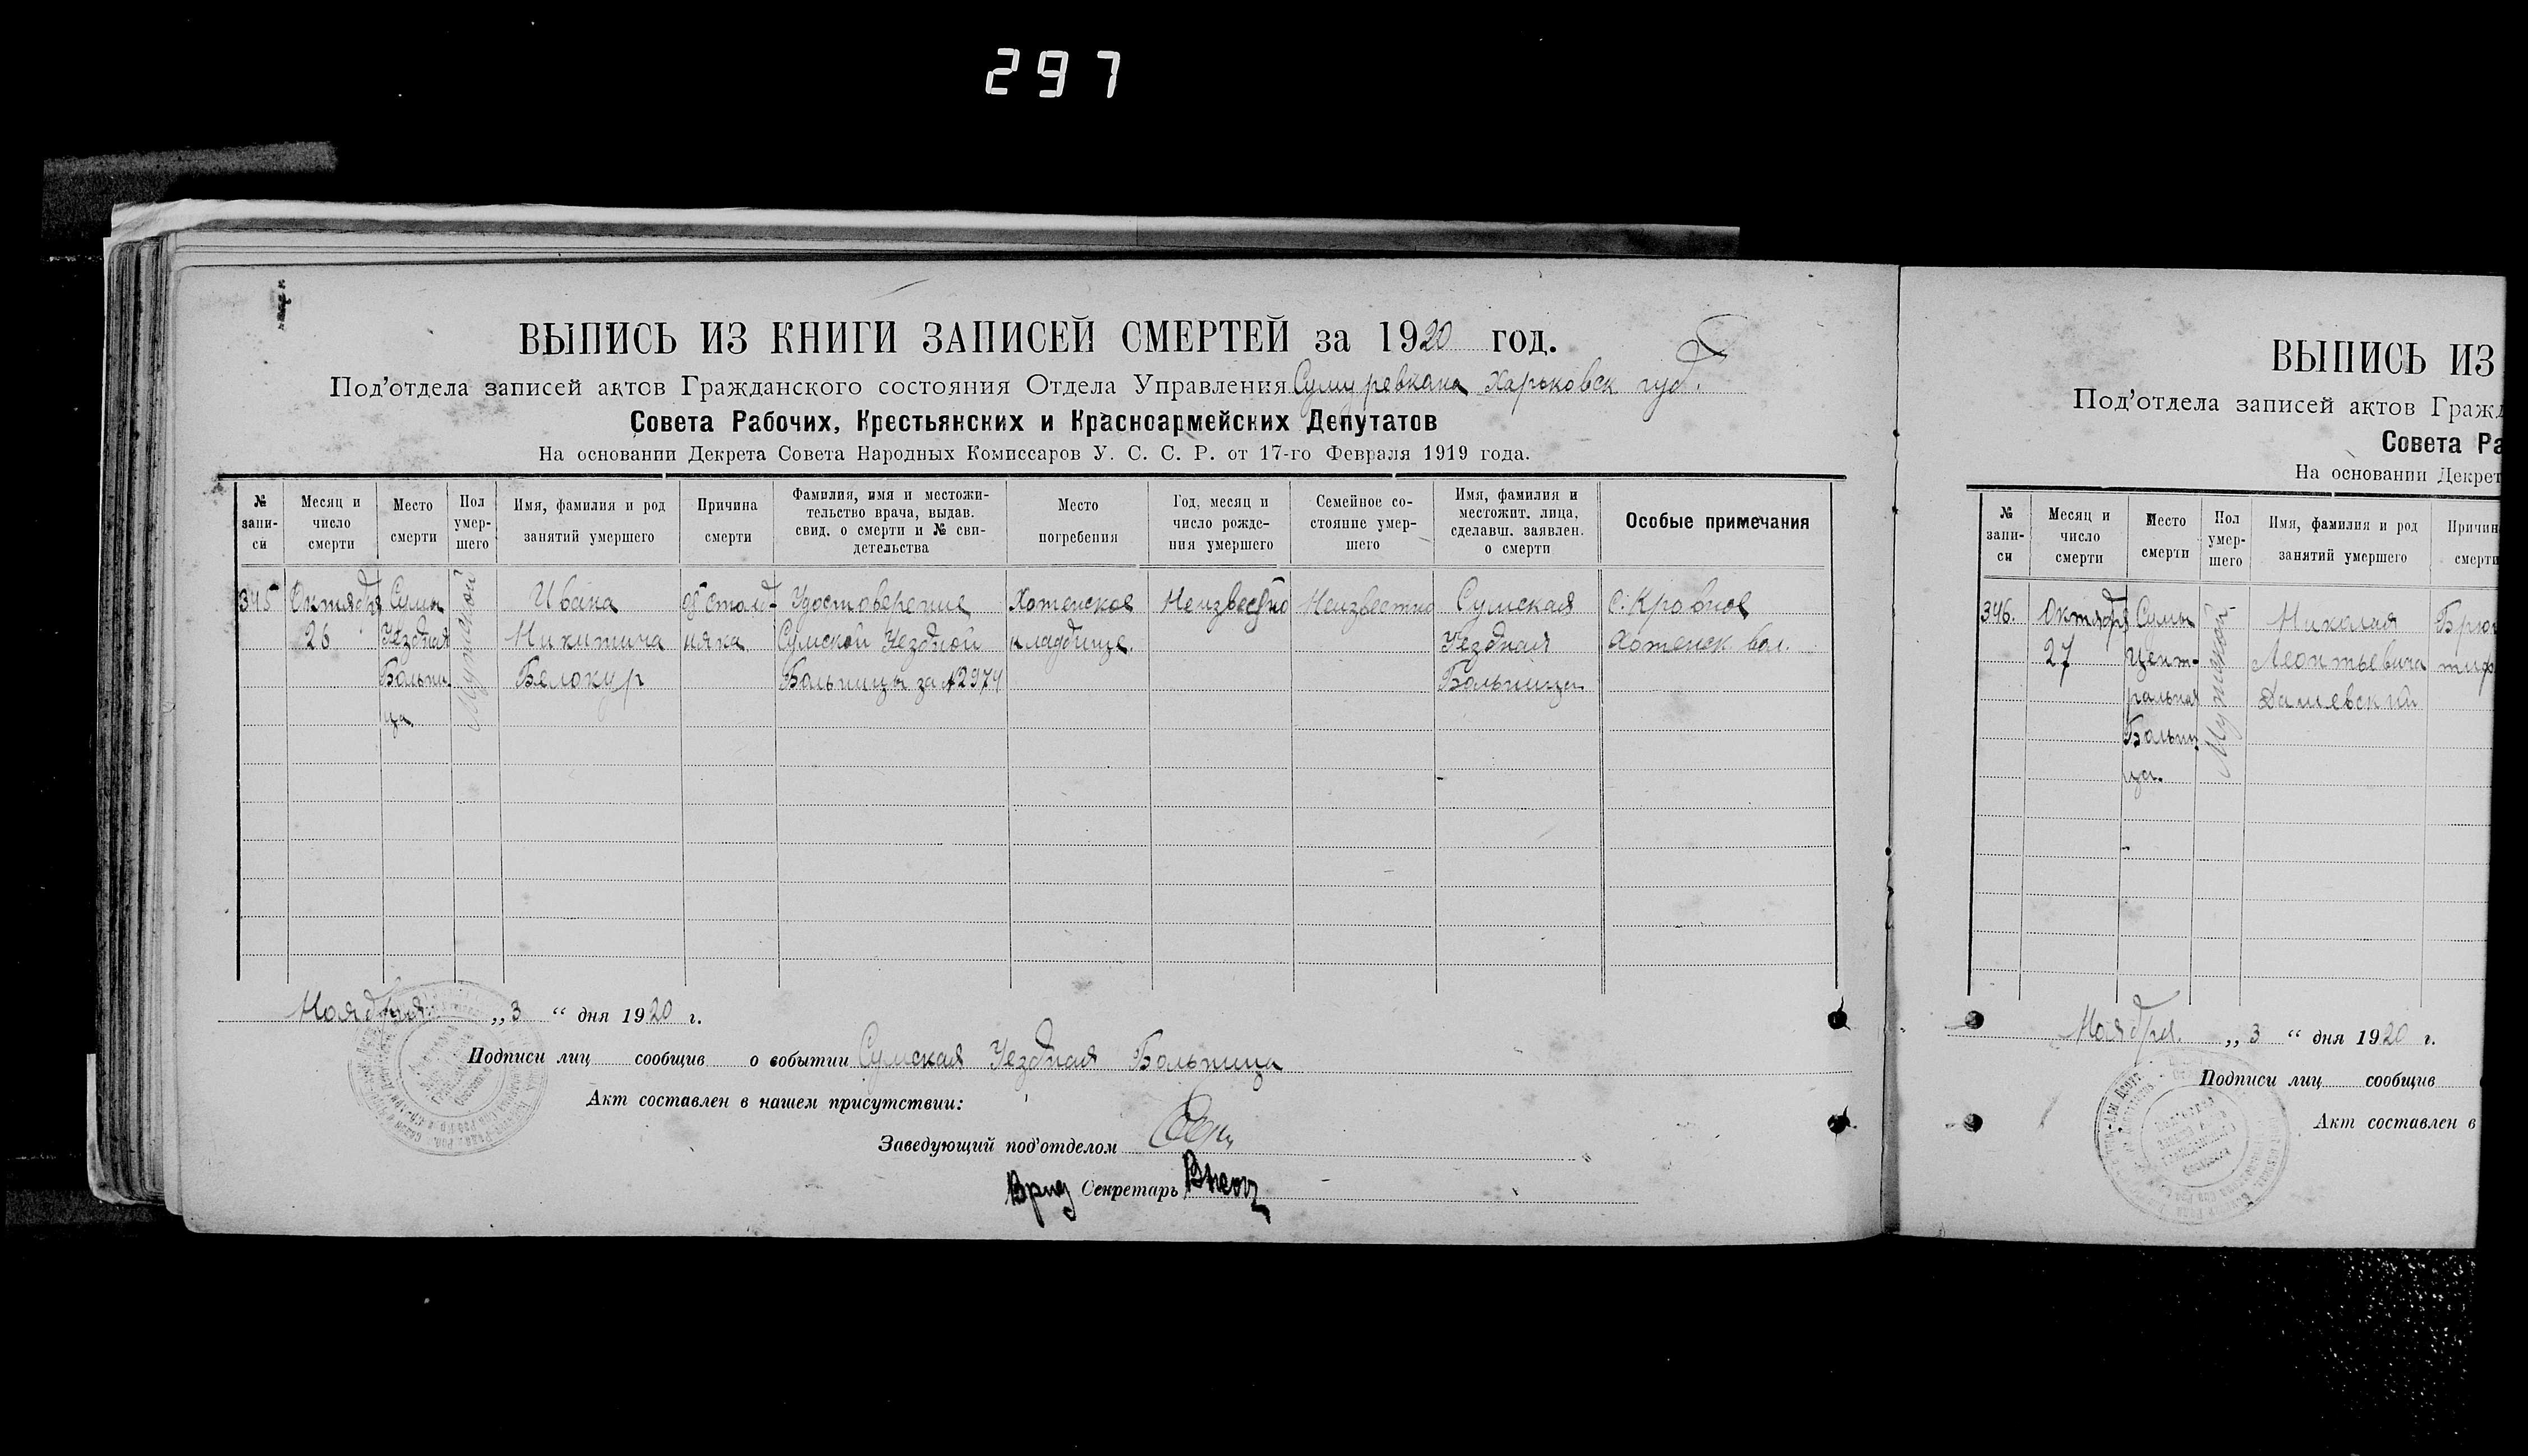 297
ВЫПИСЬ ИЗ КНИГИ ЗАПИСЕЙ СМЕРТЕЙ за 1920 год.
Под'отдела записей актов Гражданского состояния Отдела Управления Сумуревкома Харьковск губ.
Совета Рабочих, Крестьянских и Красноармейских Депутатов
На основании Декрета Совета Народных Комиссаров У. С. С. Р. от 17-го Февраля 1919 года.
№ запи-си
Месяц и число смерти
Место смерти
Пол умер-шего
Имя, фамилия и род занятий умершего
Причина смерти
Фамилия, имя и местожи-тельство врача, выдав. свид. о смерти и № сви-детельства
Место погребения
Год, месяц и число рожде-ния умершего
Семейное со-стояние умер-шего
Имя, фамилия и местожит. лица, сделавш. заявлен. о смерти
Особые примечания
345
Октября
26
Сумы
Уездная
Больни
ца.
Мужской
Ивана
Никитича
Белокур
от столб-
няка
Удостоверение
Сумской Уездной
Больницы за № 2974
Хотенское
кладбище.
Неизвестно
Неизвестно
Сумская
Уездная
Больница
с. Кровное
Хотенск вол.
Ноября „3“ дня 1920 г.
Подписи лиц сообщив о событии Сумская Уездная Больница
Акт составлен в нашем присутствии:
Заведующий под'отделом
Врид Секретарь
ВЫПИСЬ ИЗ
Под'отдела записей актов Гражд
Совета Ра
На основании Декрет
№ запи-си
Месяц и число смерти
Место смерти
Пол умер-шего
Имя, фамилия и род занятий умершего
Причин
смерти
346.
Октября
27
Сумы
Цент-
ральная
Больни
ца.
Мужской
Николая
Леонтьевича
Дашевский
Брюш
тиф
Ноября. „3“ дня 1920 г.
Подписи лиц сообщив
Акт составлен в